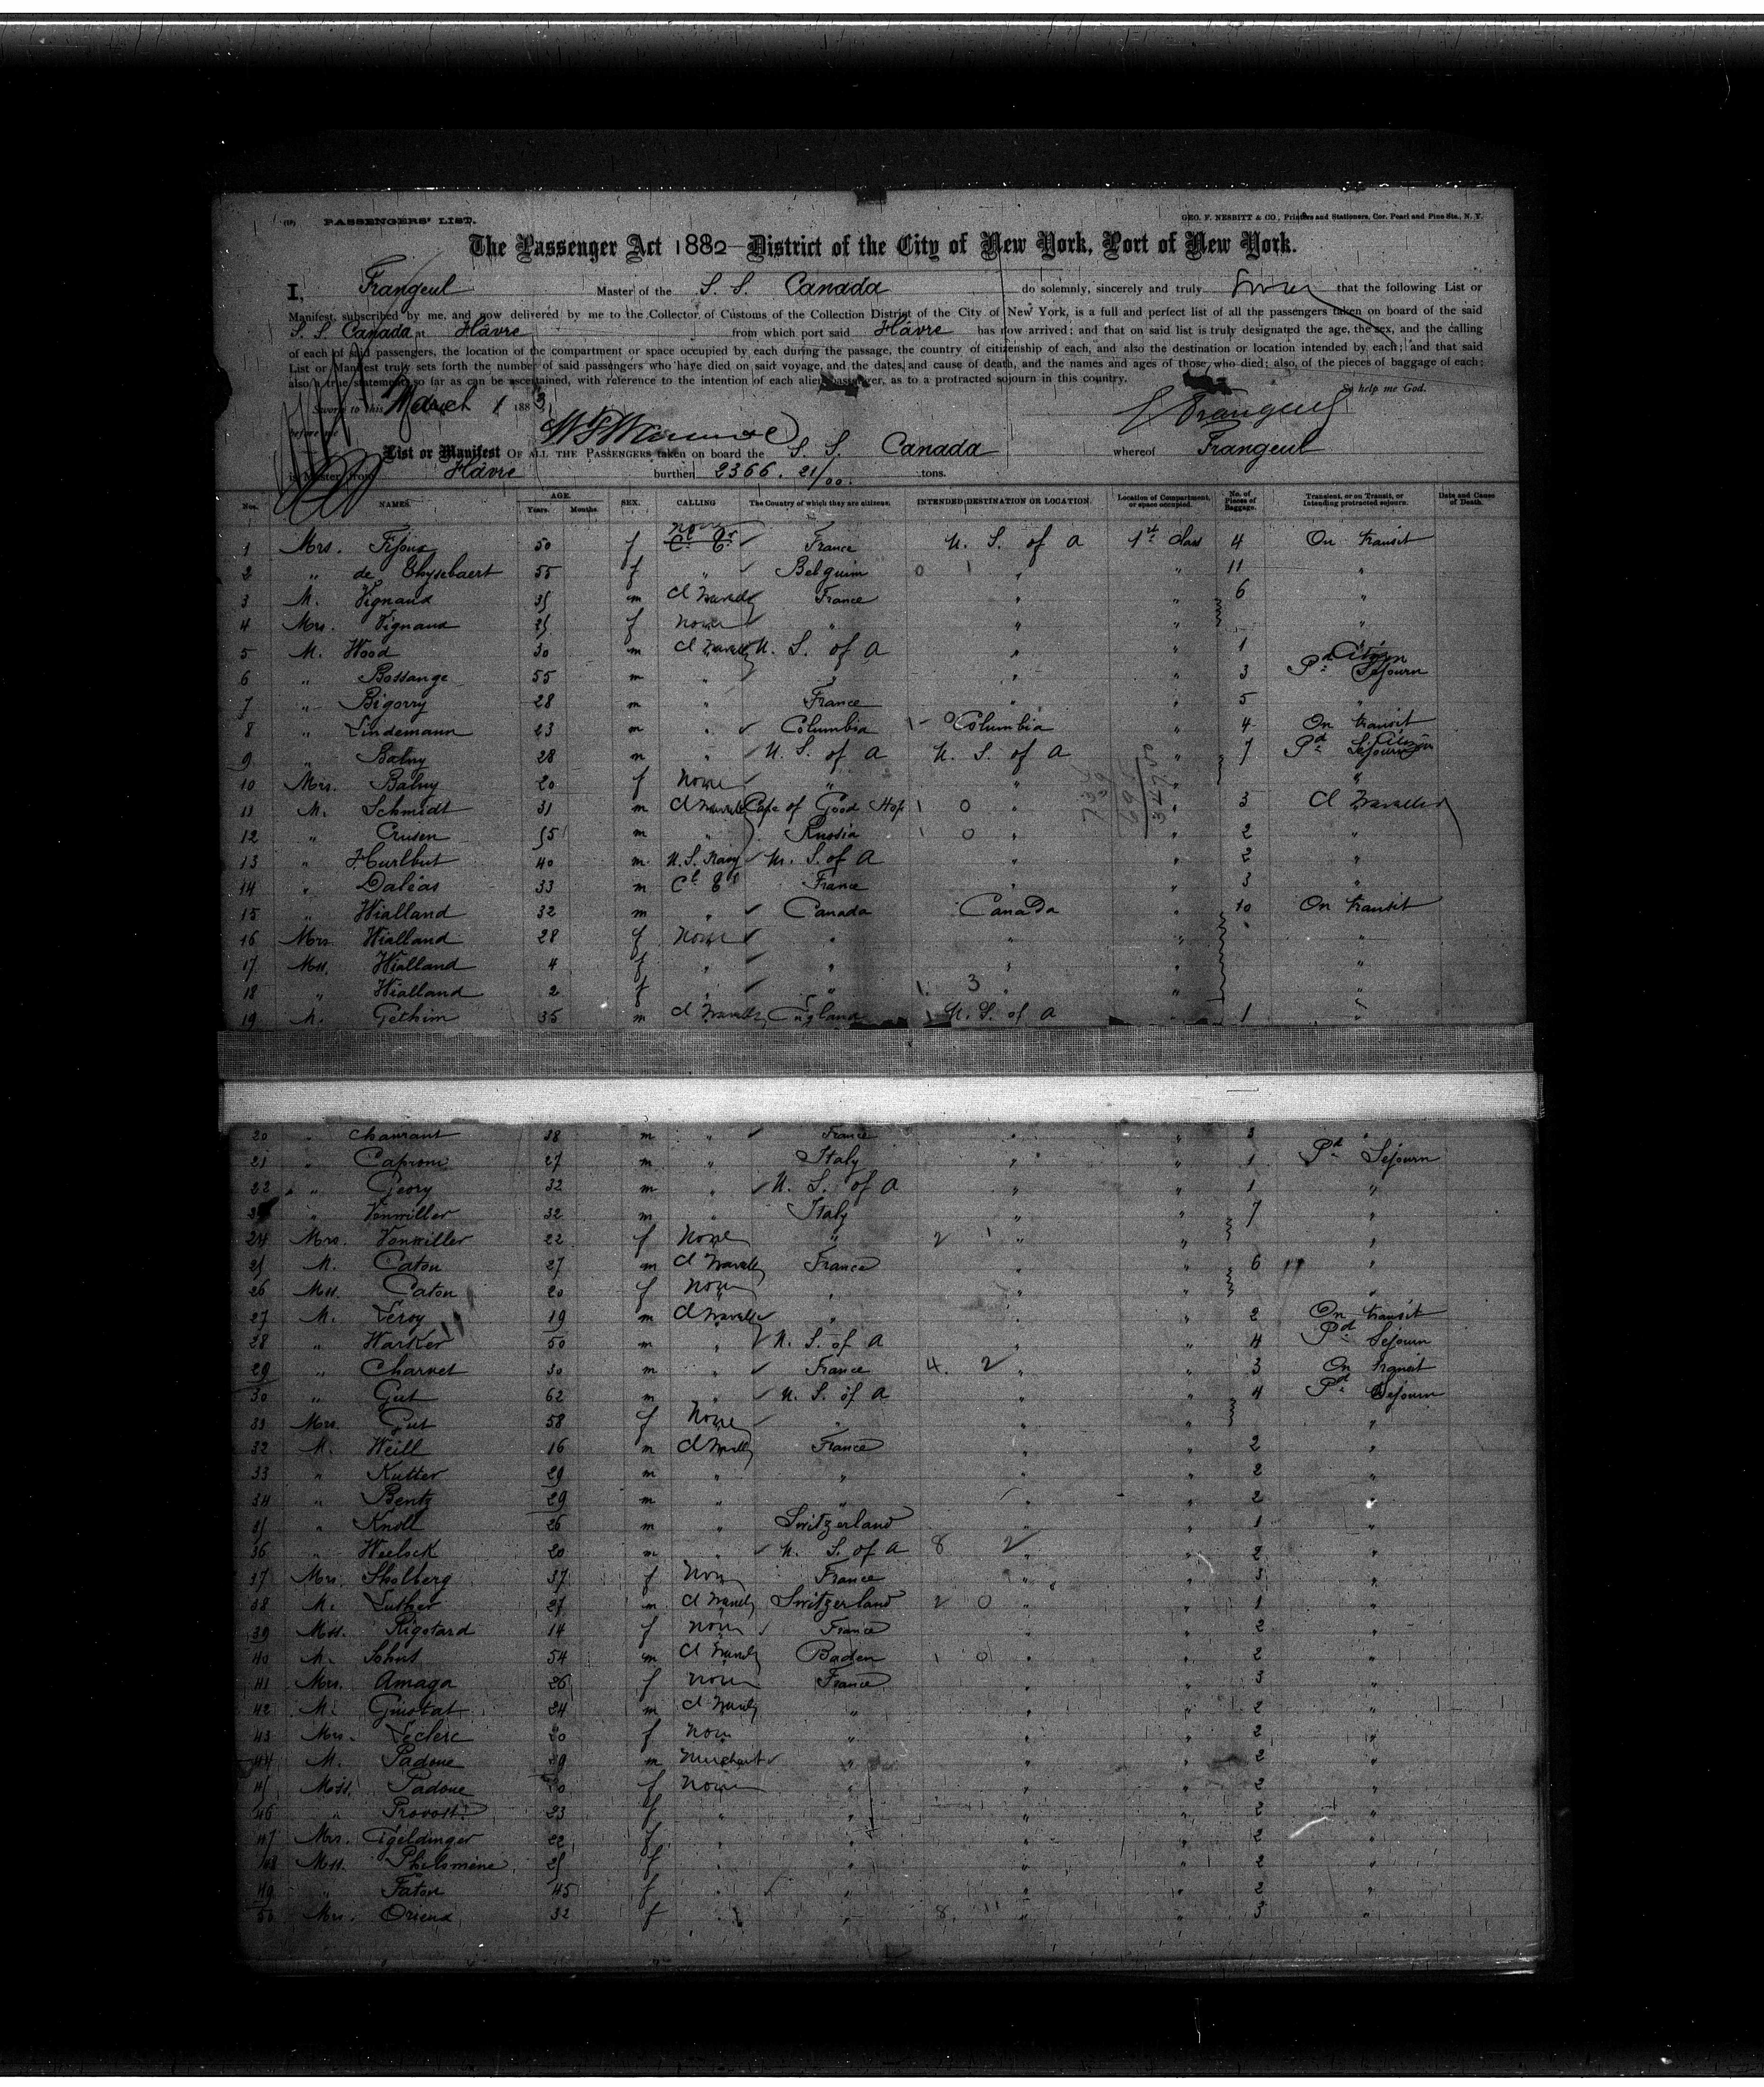 (19) PASSENGERS' LIST.
GEO. F. NESBITT & CO., Printers and Stationers, Cor. Pearl and Pine Sts., N. Y.
The Passenger Act 1882 District of the City of New York, Port of New York.
I, Frangeul Master of the S. S. Canada do solemnly, sincerely and truly that the following List or
Manifest, subscribed by me, and now delivered by me to the Collector of Customs of the Collection District of the City of New York, is a full and perfect list of all the passengers taken on board of the said
S. S. Canada at Hâvre from which port said Hâvre has now arrived; and that on said list is truly designated the age, the sex, and the calling
of each of said passengers, the location of the compartment or space occupied by each during the passage, the country of citizenship of each, and also the destination or location intended by each; and that said
List or Manifest truly sets forth the number of said passengers who have died on said voyage, and the dates and cause of death, and the names and ages of those who died; also, of the pieces of baggage of each;
also a true statement, so far as can be ascertained, with reference to the intention of each alien passenger, as to a protracted sojourn in this country.
So help me God.
Sworn to this March 1 1883
before me
Frangeul
List or Manifest OF ALL THE PASSENGERS taken on board the S. S. Canada whereof Frangeul
is Master, from Hâvre burthen 2366. 21/00. tons.
Nos. NAMES AGE. Years. Months. SEX. CALLING The Country of which they are citizens. INTENDED DESTINATION OR LOCATION. Location of Compartment, or space occupied. No. of Pieces of Baggage. Transient, or on Transit, or Intending protracted sojourn. Date and Cause of Death.
1 Mrs. 50 f None France U. S. of A 1st Class 4 On transit
2 " de Ghysebaert 55 f " Belguim " " 11 "
3 M. Vignaud 35 m France " " 6 "
4 Mrs. Vignaud 25 f None " " " "
5 M. Wood 30 m U. S. of A " " 1 Citizen
6 " Bossange 55 m " " " " 3 Pd Sejourn
7 " Bigorry 28 m " France " " 5 "
8 " Lindemann 23 m " Columbia Columbia " 4 On transit
9 " Balny 28 m " U. S. of A U. S. of A " 7 Pd Sejourn Citizen
10 Mrs. Balny 20 f None " " " "
11 M. Schmidt 31 m Cape of Good Hop 1 0 " " 3
12 " Crusen 55 m " Russia 1 0 " " 2 "
13 " Hurlbut 40 m U. S. Navy U. S. of A " " 2 "
14 " Daléas 33 m France " " 3 "
15 " Wialland 32 m " Canada Canada " 10 On transit
16 Mrs Wialland 28 f None " " " "
17 Mss. Wialland 4 f " " " " "
18 " Wialland 2 f " " 1 3 " " "
19 M. Gethim 35 m England U. S. of A " 1 "
20 " Chaurant 38 m " France " " 3 "
21 " Caproni 27 m " Italy " " 1 Pd Sejourn
22 " Geory 32 m " U. S. of A " " 1 "
" Vonwiller 32 m " Italy " " 7 "
24 Mrs. Vonwiller 22 f None " 2 1 " " "
25 M. Caton 27 m France " " 6 "
26 Mss. Caton 20 f None " " " "
27 M. Leroy 19 m " " " 2 On transit
28 " Warker 50 m " U. S. of A " " 4 Pd Sejourn
29 " Charvet 30 m " France 4. 2 " " 3 On transit
30 " Gut 62 m " U. S. of A " " 4 Pd Sejourn
31 Mrs. Gut 58 f None " " " "
32 M. Weill 16 m France " " 2 "
33 " Kutter 29 m " " " " 2 "
34 " Bentz 29 m " " " " 2 "
35 " Knoll 26 m " Switzerland " " 1 "
36 " 20 m " U. S. of A 8 2 " " 2 "
37 Mrs. Sholberg 37 f None France " " 3 "
38 M. Luther 27 m Switzerland 2 0 " " 1 "
39 Mss. Rigotard 14 f None France " " 2 "
40 M. 54 m Baden 1 0 " " 2 "
41 Mrs. Amaga 26 f None France " " 3 "
42 M. 24 m " " " 2 "
43 Mrs. Leclerc 20 f None " " " 2 "
44 M. Padone 29 m Merchant " " " 2 "
45 Miss. Padone f None " " " 2 "
46 " Provost 23 f " " " " 2 "
47 Mrs. 22 f " " " " 2 "
48 Mss. Philomène 25 f " " " " 2 "
49 " Faton 45 f " " " " 2 "
50 Mrs. 32 f " " 8 11 " " 3 "